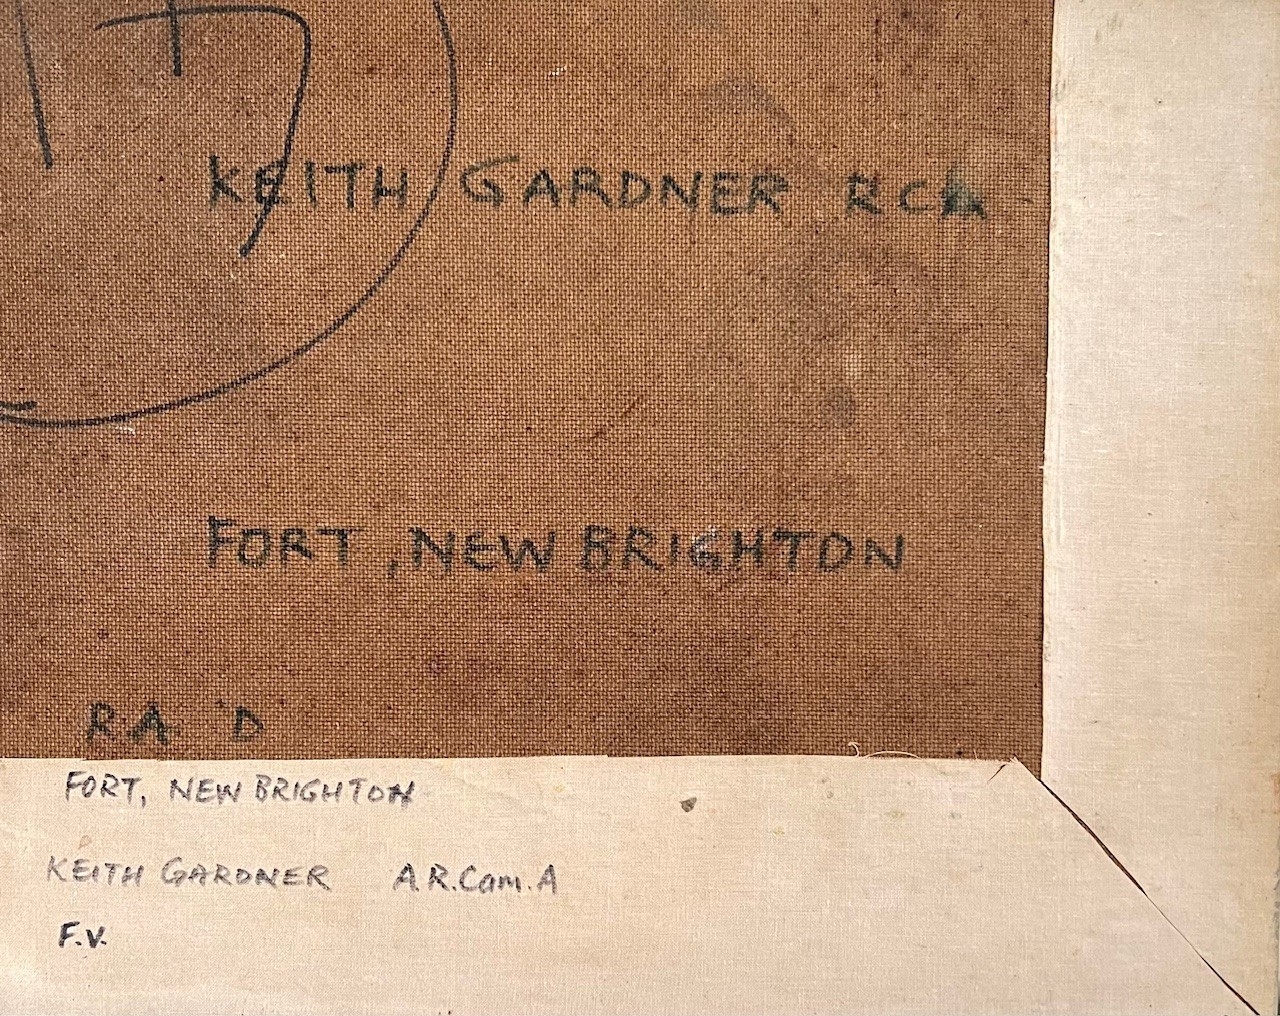 KEITH GARDNER RCA
FORT, NEW BRIGHTON
RA D
FORT, NEW BRIGHTON
KEITH GARDNER A.R.Cam.A
F.V.